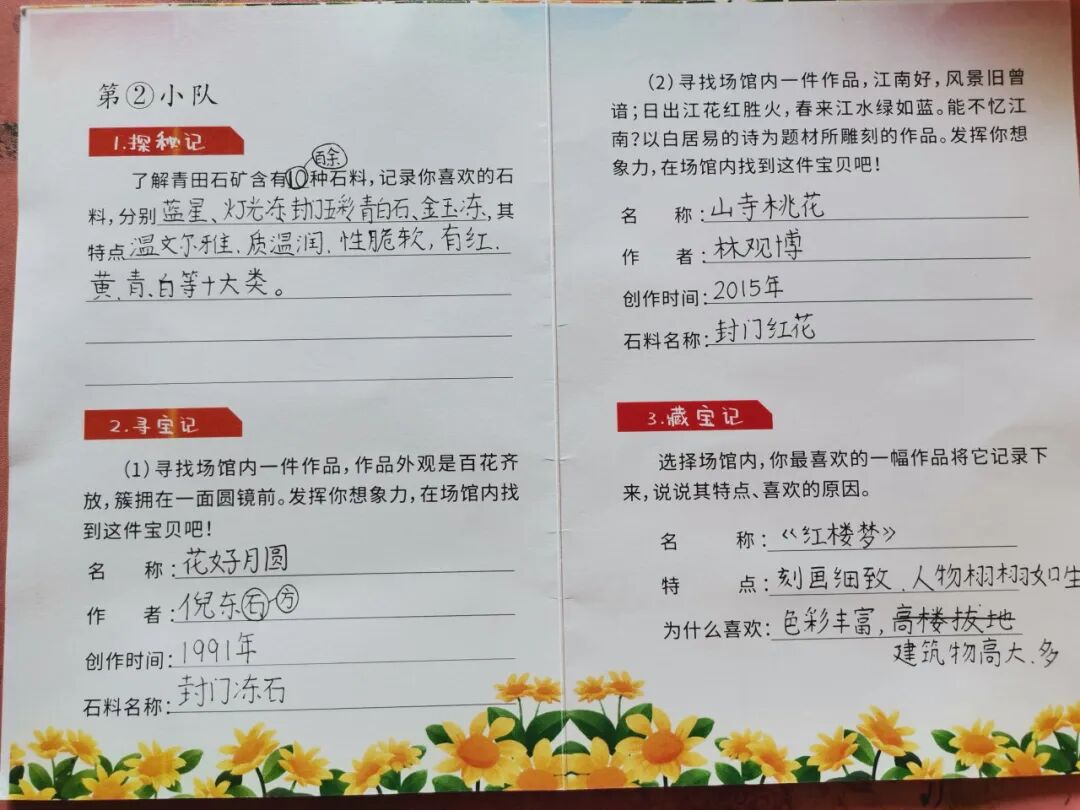 第②小队
1.探秘记
百余
了解青田石矿含有10种石料，记录你喜欢的石
料，分别蓝星、灯光冻、封门五彩、青白石、金玉冻，其
特点温文尔雅、质温润、性脆软，有红、
黄、青、白等十大类。
2.寻宝记
(1)寻找场馆内一件作品，作品外观是百花齐
放，簇拥在一面圆镜前。发挥你想象力，在场馆内找
到这件宝贝吧！
名 称：花好月圆
作 者：倪东石方
创作时间：1991年
石料名称：封门冻石
(2)寻找场馆内一件作品，江南好，风景旧曾
谙；日出江花红胜火，春来江水绿如蓝。能不忆江
南？以白居易的诗为题材所雕刻的作品。发挥你想
象力，在场馆内找到这件宝贝吧！
名 称：山寺桃花
作 者：林观博
创作时间：2015年
石料名称：封门红花
3.藏宝记
选择场馆内，你最喜欢的一幅作品将它记录下
来，说说其特点、喜欢的原因。
名 称：《红楼梦》
特 点：刻画细致、人物栩栩如生
为什么喜欢：色彩丰富，高楼拔地
建筑物高大、多